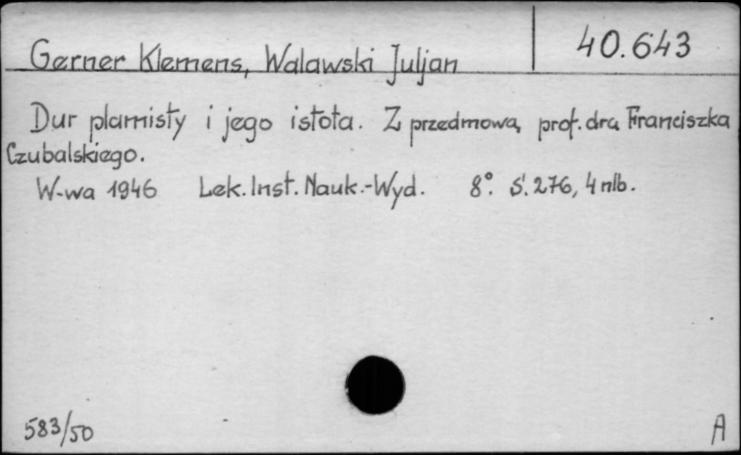 Gerner Klemens, Walawski Juljan
40.643
Dur plamisty i jego istota. Z przedmową prof. dra Franciszka
Czubalskiego.
W-wa 1946 Lek. Inst. Nauk.-Wyd. 8°. S. 276, 4 nlb.
583/50
A